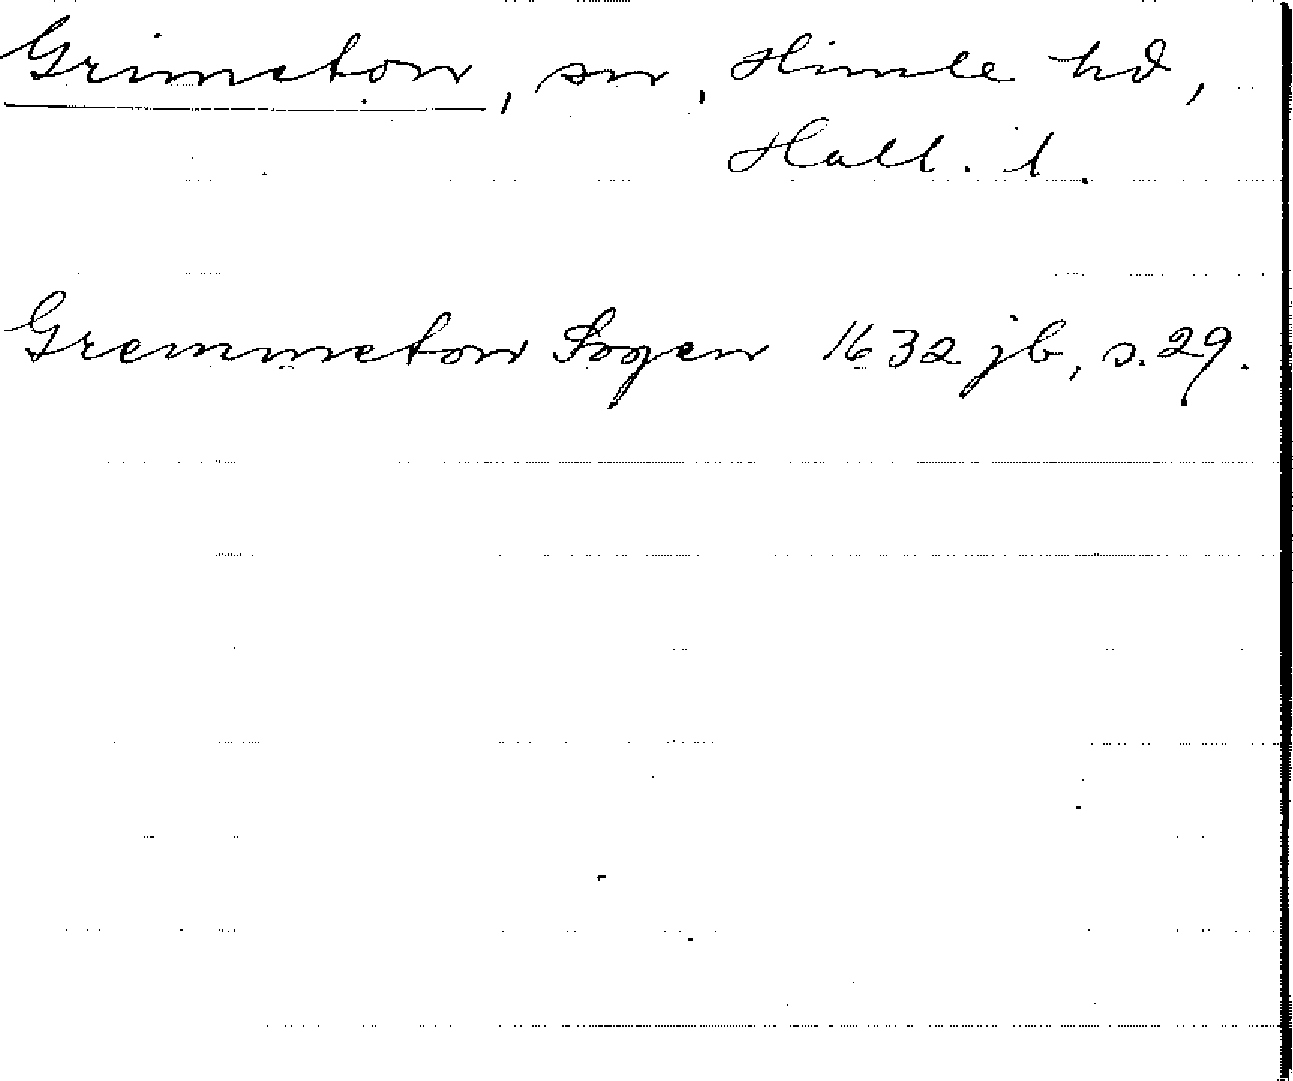 Grimeton, sn, Himle hd,
Hall. l.
Gremmeton Sogen 1632 jb, s. 29.